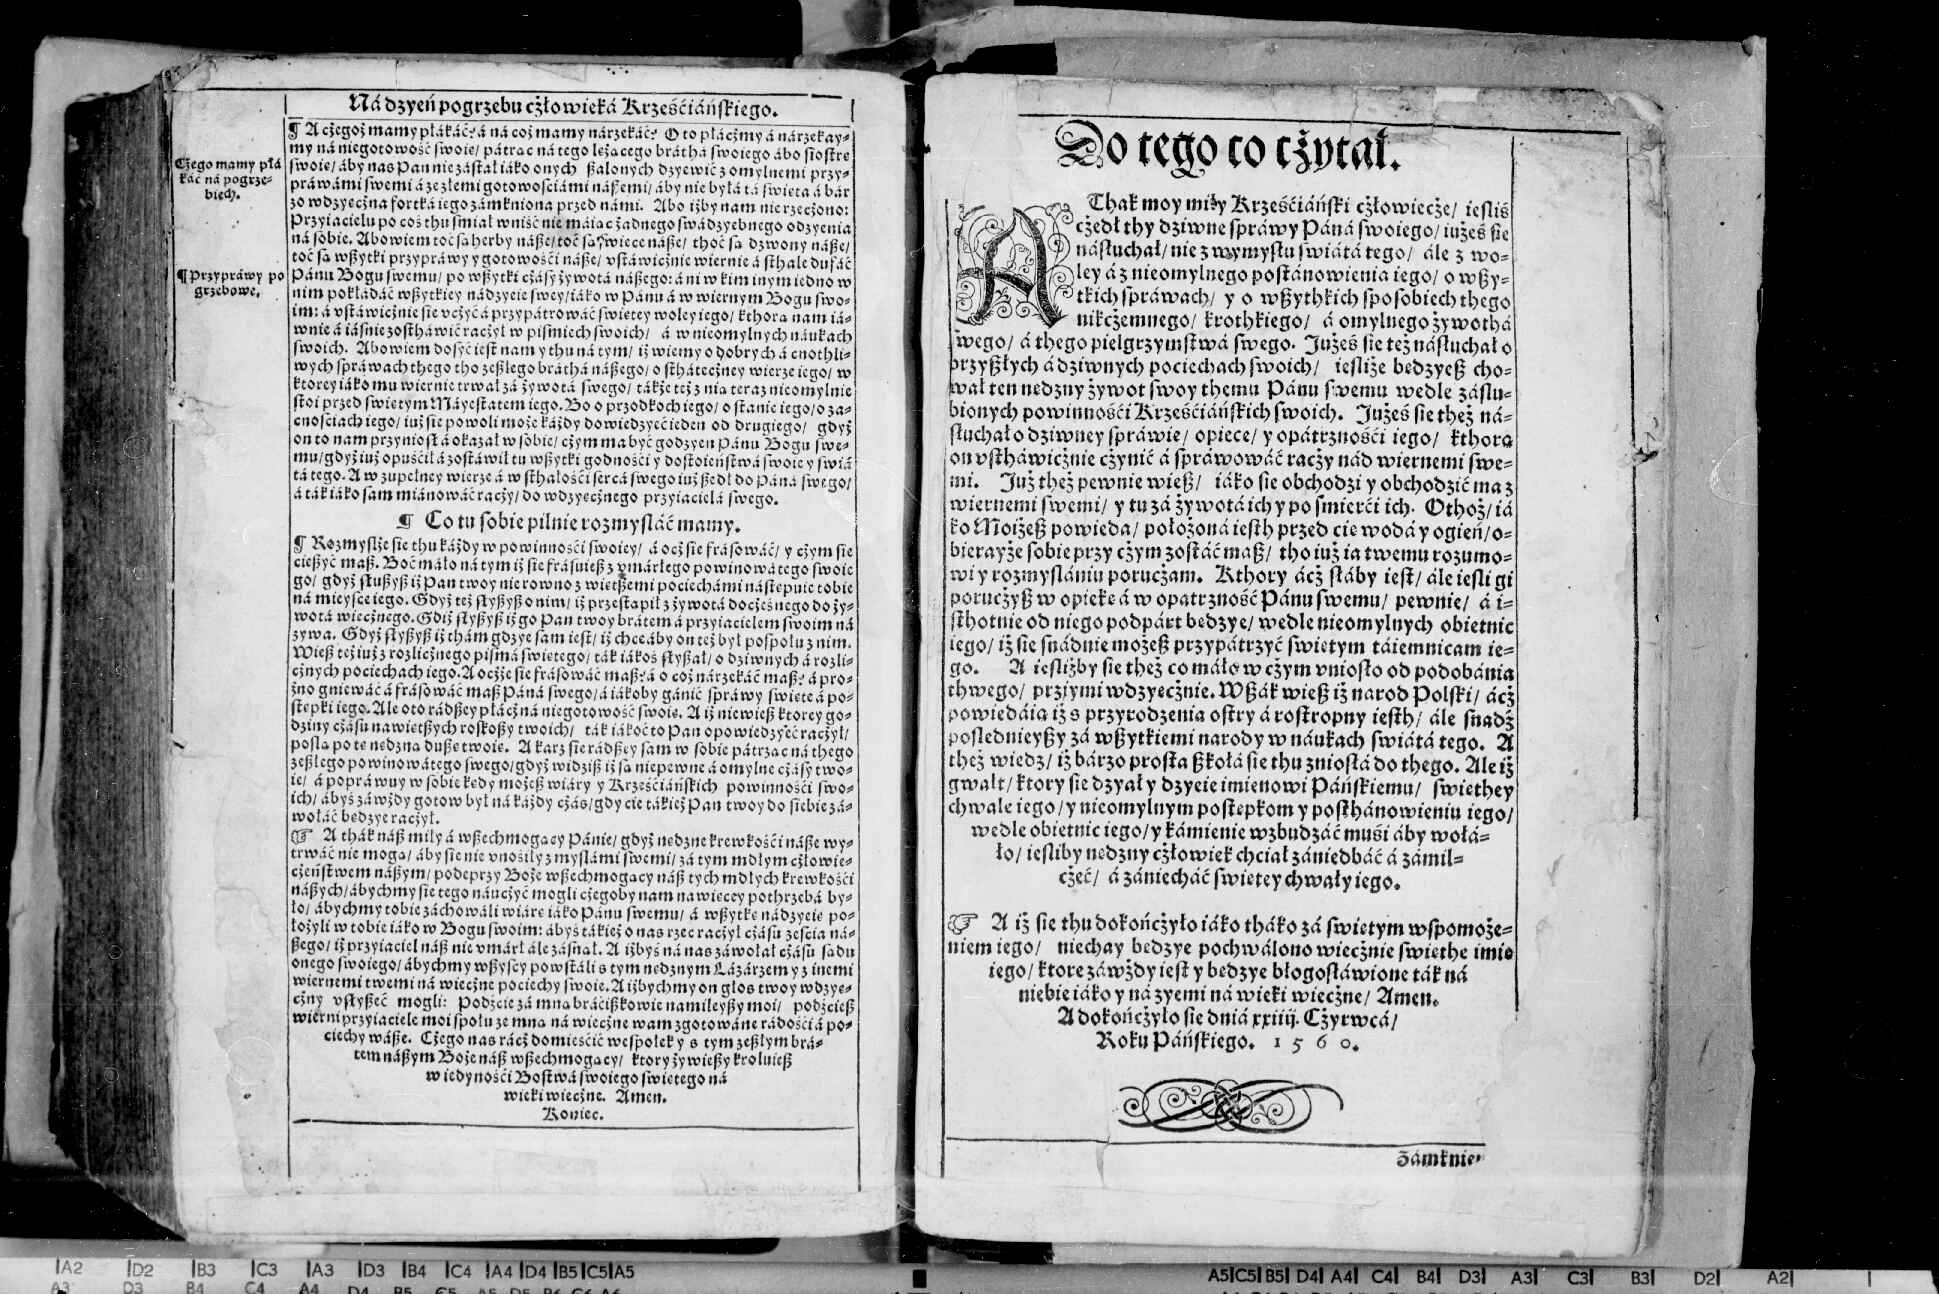 Ná dzyeń pogrzebu cżłowieká Krześćiáńſkiego.
Cżego mamy płá
káć ná pogrze-
biech.
¶ Przypráwy po
grzebowe.
¶ A cżegoż mamy płákáć? á ná coż mamy nárzekáć? O to płácżmy á nárzekay-
my ná niegotowość ſwoię/ pátrząc ná tego leżącego brátha ſwoiego ábo ſioſtrę
ſwoię/ áby nas Pan nie záſtał iáko onych ßalonych dzyewic z omylnemi przy-
práwámi ſwemi á ze złemi gotowośćiámi náßemi/ áby nie byłá tá święta á bár
zo wdzyecżna fortká iego zámkniona przed námi. Abo iżby nam nie rzecżono:
Przyiacielu po coś thu śmiał wniść nie máiąc żadnego ſwádzyebnego odzyenia
ná ſobie. Abowiem toć ſą herby náße/ toć ſą świece náße/ thoć ſą dzwony náße/
toć ſą wßytki przypráwy y gotowośći náße/ vſtáwicżnie wiernie á ſthale dufáć
Pánu Bogu ſwemu/ po wßytki cżáſy żywotá náßego: áni w kim inym iedno w
nim pokłádáć wßytkiey nádzyeie ſwey/ iáko w Pánu á w wiernym Bogu ſwo-
im: á vſtáwicżnie ſie vcżyć á przypátrowáć świętey woley iego/ kthorą nam iá-
wnie á iáſnie zoſtháwić racżył w piśmiech ſwoich/ á w nieomylnych náukach
ſwoich. Abowiem doſyć ieſt nam y thu ná tym/ iż wiemy o dobrych á cnothli-
wych ſpráwach thego tho zeßłego bráthá náßego/ o ſtháteczney wierze iego/ w
ktorey iáko mu wiernie trwał zá żywotá ſwego/ tákże też z nią teraz nieomylnie
ſtoi przed świętym Máyeſtatem iego. Bo o przodkoch iego/ o ſtanie iego/ o za-
cnośćiach iego/ iuż ſie powoli może káżdy dowiedzyeć ieden od drugiego/ gdyż
on to nam przynioſł á okazał w ſobie/ cżym ma być godzyen Pánu Bogu ſwe-
mu/ gdyż iuż opuśćił á zoſtáwił tu wßytki godnośći y doſtoieńſtwá ſwoie y świá
tá tego. A w zupełney wierze á w ſthałośći ſercá ſwego iuż ßedł do Páná ſwego/
á ták iáko ſam miánowáć racży/ do wdzyecżnego przyiacielá ſwego.
¶ Co tu ſobie pilnie rozmyſláć mamy.
¶ Rozmyſlże ſie thu káżdy w powinnośći ſwoiey/ á ocż ſie fráſowáć/ y cżym ſie
cießyć maß. Boć máło ná tym iż ſie fráſuieß z vmárłego powinowátego ſwoie
go/ gdyż ſłußyß iż Pan twoy nie rowno z więtßemi pociechámi náſtępuie tobie
ná mieyſce iego. Gdyż też ſłyßyß o nim/ iż przeſtąpił z żywotá docżeśnego do ży-
wotá wiecżnego. Gdiż ſłyßyß iż go Pan twoy brátem á przyiacielem ſwoim ná
zywa. Gdyż ſłyßyß iż thám gdzye ſam ieſt/ iż chce áby on też był poſpołu z nim.
Wieß też iuż z rozlicżnego piſmá świętego/ ták iákoś ſłyßał/ o dziwnych á rozli-
cżnych pociechach iego. A ocżże ſie fráſowáć maß? á o coż nárzekáć maß? á pro-
żno gniewáć á fráſowáć maß Páná ſwego/ á iákoby gánić ſpráwy święte á po-
ſtępki iego. Ale oto rádßey płácż ná niegotowość ſwoię. A iż nie wieß ktorey go-
dziny cżáſu nawiętßych roſkoßy twoich/ ták iákoć to Pan opowiedzyeć racżył/
pośla po tę nędzną dußę twoię. A karz ſie rádßey ſam w ſobie pátrząc ná thego
zeßłego powinowátego ſwego/ gdyż widziß iż ſą niepewne á omylne cżáſy two-
ie/ á popráwuy w ſobie kędy możeß wiáry y Krześćiáńſkich powinnośći ſwo-
ich/ ábyś záwżdy gotow był ná káżdy cżás/ gdy cie tákież Pan twoy do ſiebie zá-
wołáć będzye racżył.
☞ A thák náß miły á wßechmogący Pánie/ gdyż nędzne krewkośći náße wy-
trwáć nie mogą/ áby ſie nie vnośiły z myſlámi ſwemi/ zá tym mdłym cżłowie-
cżeńſtwem náßym/ podeprzy Boże wßechmogący náß tych mdłych krewkośći
náßych/ ábychmy ſie tego náucżyć mogli cżegoby nam nawięcey pothrzebá by-
ło/ ábychmy tobie záchowáli wiárę iáko Pánu ſwemu/ á wßytkę nádzyeię po-
łożyli w tobie iáko w Bogu ſwoim: ábyś tákież o nas rzec racżył cżáſu ześcia ná-
ßego/ iż przyiaciel náß nie vmárł ále záſnął. A iżbyś ná nas záwołał cżáſu ſądu
onego ſwoiego/ ábychmy wßyſcy powſtáli s tym nędznym Lázárzem y z inemi
wiernemi twemi ná wiecżne pociechy ſwoie. A iżbychmy on głos twoy wdzye-
cżny vſłyßeć mogli: Podźcie zá mną bráćißkowie namileyßy moi/ podźcieß
wierni przyiaciele moi ſpołu ze mną ná wiecżne wam zgotowáne rádośći á po-
ciechy wáße. Cżego nas rácż domieśćić weſpołek y s tym zeßłym brá-
tem náßym Boże náß wßechmogący/ ktory żywießy kroluieß
w iedynośći Boſtwá ſwoiego świętego ná
wieki wiecżne. Amen.
Koniec.
Do tego co cżytał.
AThak moy miły Krześćiáński cżłowiecże/ ieſliś
cżedł thy dziwne ſpráwy Páná ſwoiego/ iużeś ſie
náſłuchał/ nie z wymyſłu świátá tego/ ále z wo-
ley á z nieomylnego poſtánowienia iego/ o wßy-
tkich ſpráwach/ y o wßythkich ſpoſobiech thego
nikcżemnego/ krothkiego/ á omylnego żywothá
ſwego/ á thego pielgrzymſtwá ſwego. Iużeś ſie też náſłuchał o
przyßłych á dziwnych pociechach ſwoich/ ieſliże będzyeß cho-
wał ten nędzny żywot ſwoy themu Pánu ſwemu wedle záſlu-
bionych powinnośći Krześćiáńſkich ſwoich. Iużeś ſie theż ná-
ſłuchał o dziwney ſpráwie/ opiece/ y opátrznośći iego/ kthorą
on vſtháwicżnie cżynić á ſpráwowáć racży nád wiernemi ſwe-
mi. Iuż theż pewnie wieß/ iáko ſie obchodzi y obchodzić ma z
wiernemi ſwemi/ y tu zá żywotá ich y po śmierći ich. Othoż/ iá
ko Moiżeß powieda/ położoná ieſth przed cie wodá y ogień/ o-
bierayże ſobie przy cżym zoſtáć maß/ tho iuż ia twemu rozumo-
wi y rozmyſlániu porucżam. Kthory ácż ſłáby ieſt/ ále ieſli gi
porucżyß w opiekę á w opatrzność Pánu ſwemu/ pewnie/ á i-
ſthotnie od niego podpárt będzye/ wedle nieomylnych obietnic
iego/ iż ſie ſnádnie możeß przypátrzyć świętym táiemnicam ie-
go. A ieſliżby ſie theż co máło w cżym vnioſło od podobánia
thwego/ przyimi wdzyecżnie. Wßák wieß iż narod Polſki/ ácż
powiedáią iż s przyrodzenia oſtry á roſtropny ieſth/ ále ſnadź
poſlednieyßy zá wßytkiemi narody w náukach świátá tego. A
theż wiedz/ iż bárzo proſta ßkołá ſie thu znioſłá do thego. Ale iż
gwałt/ ktory ſie dzyał y dzyeie imienowi Páńſkiemu/ świethey
chwale iego/ y nieomylnym poſtępkom y poſthánowieniu iego/
wedle obietnic iego/ y kámienie wzbudzáć muśi áby wołá-
ło/ ieſliby nędzny cżłowiek chciał zániedbáć á zámil-
cżeć/ á zániecháć świętey chwały iego.
☞ A iż ſie thu dokończyło iáko tháko zá świętym wſpomoże-
niem iego/ niechay będzye pochwalono wiecżnie święthe imię
iego/ ktore záwżdy ieſt y będzye błogoſłáwione ták ná
niebie iáko y ná zyemi ná wieki wiecżne/ Amen.
A dokończyło ſie dniá xxiiij. Cżyrwcá/
Roku Páńſkiego. 1560.
Zámknie
A2 D2 B3 C3 A3 D3 B4 C4 A4 D4 B5 C5 A5
A5 C5 B5 D4 A4 C4 B4 D3 A3 C3 B3 D2 A2
A3 D3 B4 C4 A4 D4 B5 C5 A5 D5 B6 C6 A6